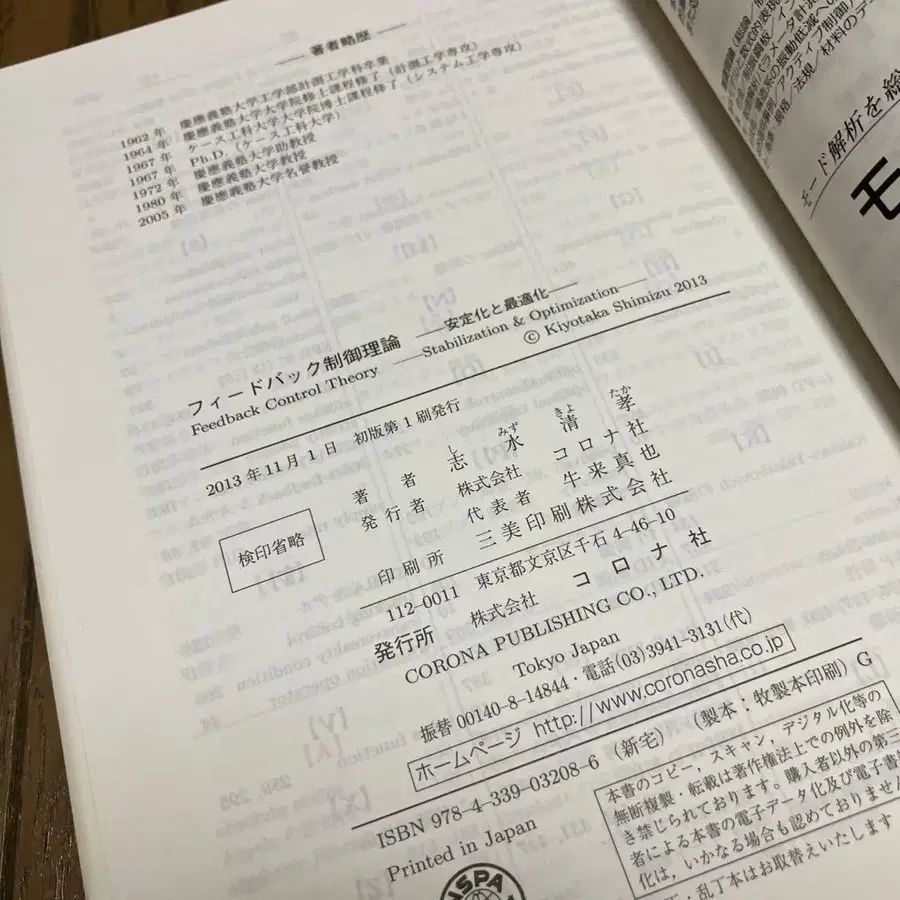 著者略歴
1962年 慶應義塾大学工学部計測工学科卒業
1964年 慶應義塾大学大学院修士課程修了(計測工学専攻)
1967年 ケース工科大学大学院博士課程修了(システム工学専攻)
1967年 Ph.D.(ケース工科大学)
1972年 慶應義塾大学助教授
1980年 慶應義塾大学教授
2005年 慶應義塾大学名誉教授
フィードバック制御理論 ——安定化と最適化——
Feedback Control Theory ——Stabilization & Optimization——
© Kiyotaka Shimizu 2013
2013年11月1日 初版第1刷発行
検印省略
著者 志水清孝
し みず きよ たか
発行者 株式会社 コロナ社
代表者 牛来真也
印刷所 三美印刷株式会社
112-0011 東京都文京区千石4-46-10
発行所 株式会社 コロナ社
CORONA PUBLISHING CO., LTD.
Tokyo Japan
振替00140-8-14844・電話(03)3941-3131(代)
ホームページ http://www.coronasha.co.jp
ISBN 978-4-339-03208-6 (新宅) (製本:牧製本印刷) G
Printed in Japan
本書のコピー、スキャン、デジタル化等の
無断複製・転載は著作権法上での例外を除
き禁じられております。購入者以外の第三
者による本書の電子データ化及び電子書
化は、いかなる場合も認めておりません
・乱丁本はお取替えいたします
NSPA
モード解析を総
モ